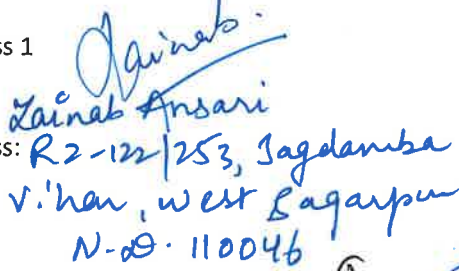 ss 1
Zainab.
Zainab Ansari
ss: R2-122/253, Jagdamba
Vihar, West Sagarpur
N-D. 110046